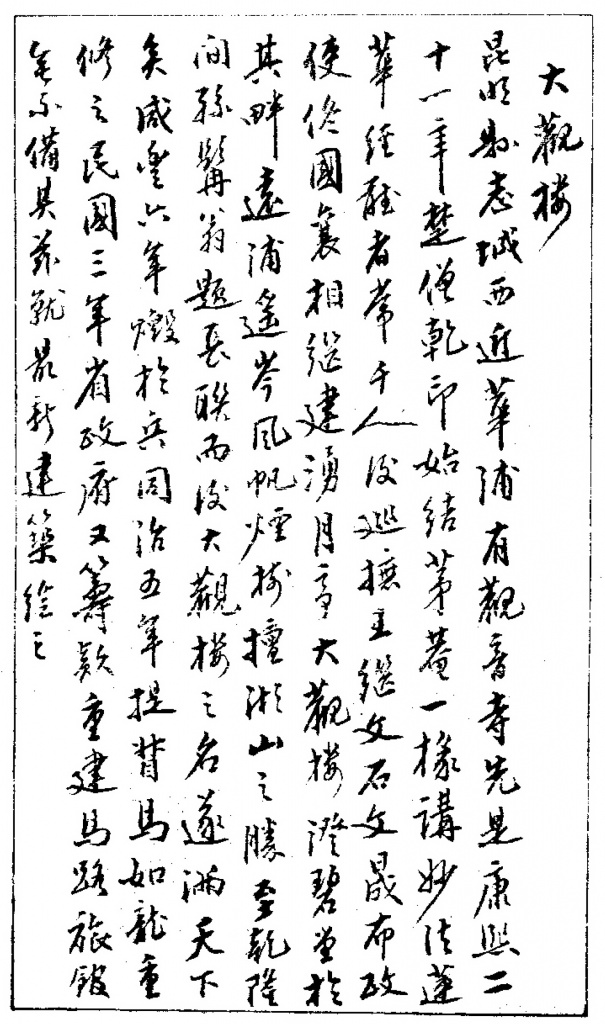 大觀楼
昆明縣志城西近華浦有觀音寺先是康熙二
十一年楚僧乾印始結茅菴一椽講妙法蓮
華經聽者常千人後巡撫王繼文石文晟布政
使佟國襄相繼建湧月亭大觀楼澄碧堂於
其畔遠浦遙岑風帆煙樹擅湖山之勝至乾隆
間孫髯翁題長聯而後大觀楼之名遂滿天下
矣咸豐六年燬於兵同治五年提督馬如龍重
修之民國三年省政府又籌款重建馬路旅館
無不備具茲就最新建築繪之